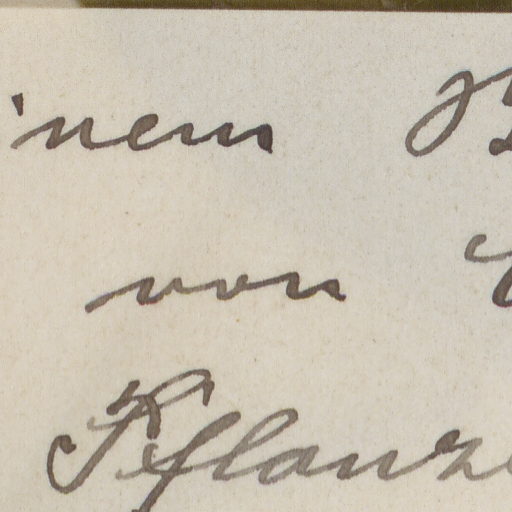 inem B
von
Pflanz